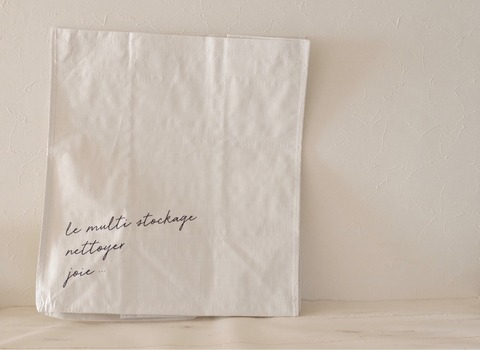 le multi stockage
nettoyer
joie...